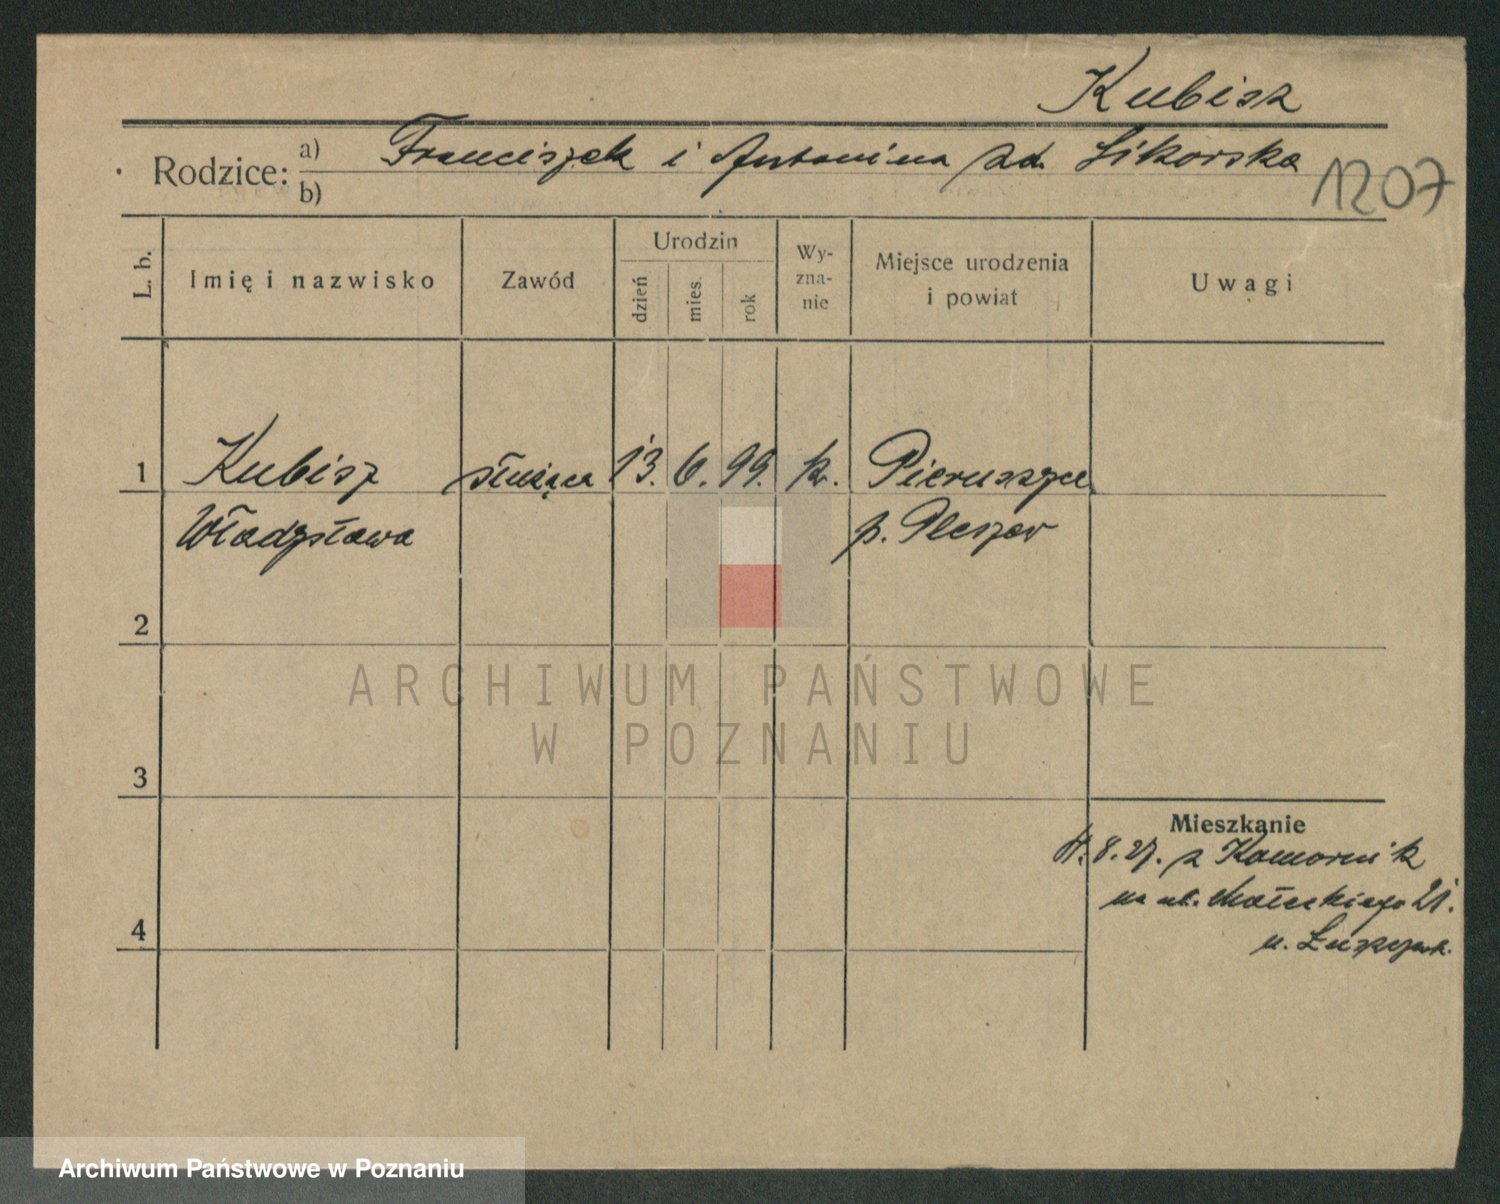 Kubisz
Rodzice: a) Franciszek i Antonina zd. Sikorska
b)
1207
L. b.
Imię i nazwisko
Zawód
Urodzin
dzień
mies.
rok
Wy-
zna-
nie
Miejsce urodzenia
i powiat
Uwagi
1 Kubisz służąca 13. 6. 99. k. Pieruszyce
Władysława p. Pleszew
2
ARCHIWUM PAŃSTWOWE
W POZNANIU
3
Mieszkanie
8. 27. z Komornik
na ul. Małeckiego 21.
u.
4
Archiwum Państwowe w Poznaniu